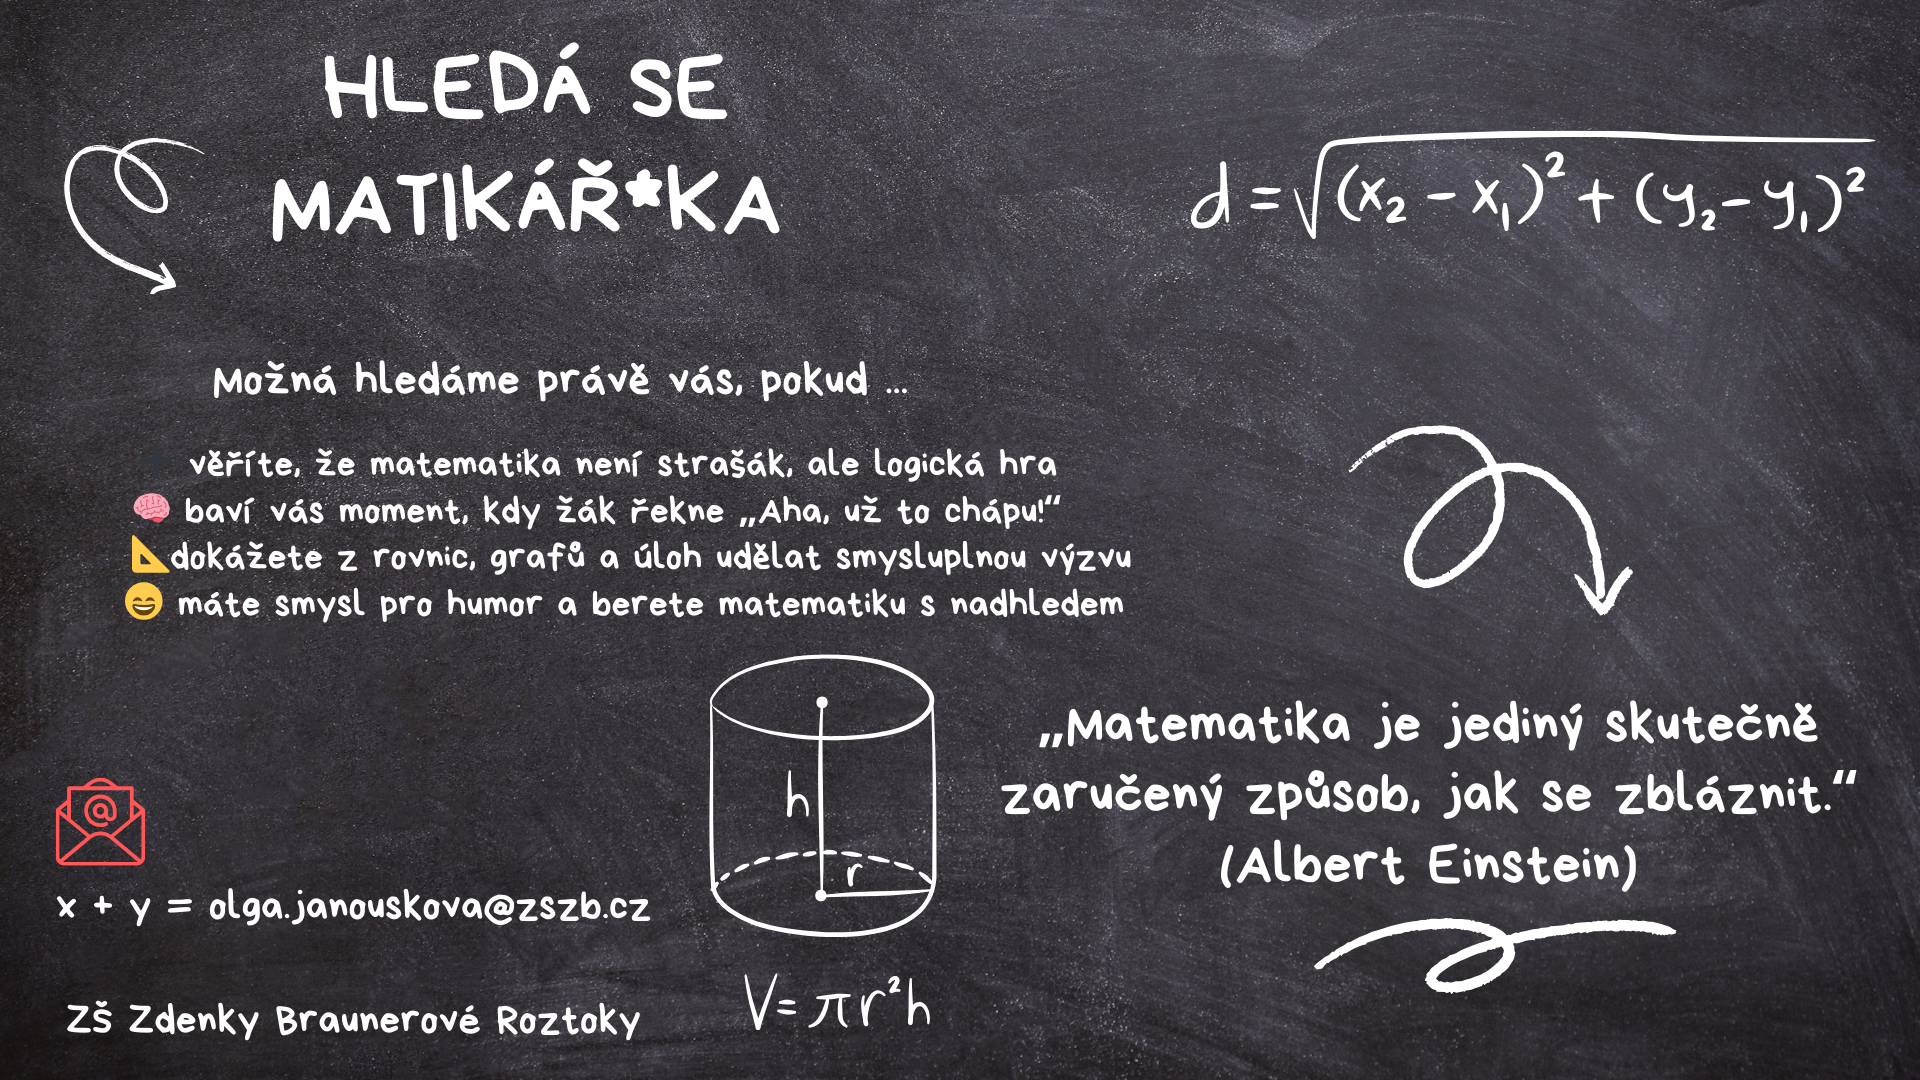 HLEDÁ SE
MATIKÁŘ*KA
d = √(x₂ - x₁)² + (y₂ - y₁)²
Možná hledáme právě vás, pokud ...
věříte, že matematika není strašák, ale logická hra
🧠 baví vás moment, kdy žák řekne „Aha, už to chápu!“
📐dokážete z rovnic, grafů a úloh udělat smysluplnou výzvu
😄 máte smysl pro humor a berete matematiku s nadhledem
h
r
V = πr²h
„Matematika je jediný skutečně
zaručený způsob, jak se zbláznit.“
(Albert Einstein)
@
x + y = olga.janouskova@zszb.cz
ZŠ Zdenky Braunerové Roztoky